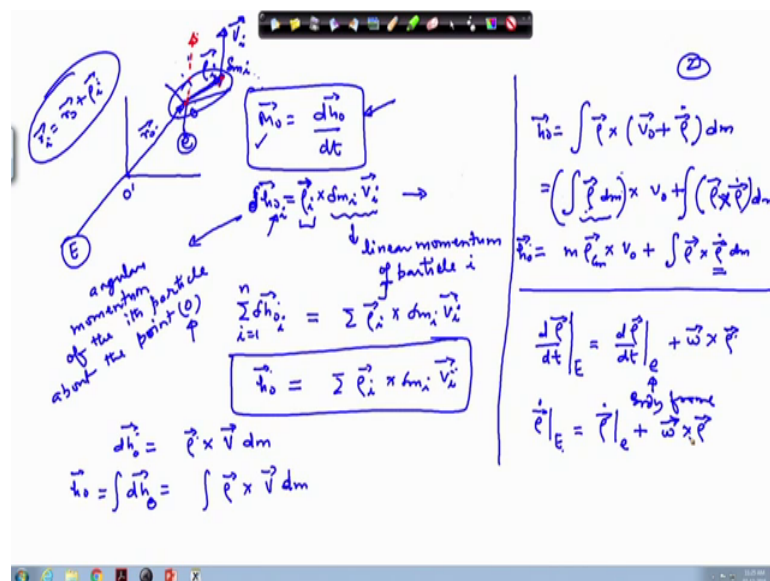 V⃗ᵢ
ρ⃗ᵢ
δmᵢ
r⃗ᵢ = r⃗₀ + ρ⃗ᵢ
r⃗₀
O
e
O'
E
M⃗₀ = dh⃗₀/dt
✓
δh⃗₀ᵢ = ρ⃗ᵢ × δmᵢ V⃗ᵢ →
linear momentum
of particle i
angular
momentum
of the ith particle
about the point (O)
∑ᵢ₌₁ⁿ δh⃗₀ᵢ = Σ ρ⃗ᵢ × δmᵢ V⃗ᵢ
h⃗₀ = Σ ρ⃗ᵢ × δmᵢ V⃗ᵢ
dh⃗₀ = ρ⃗ × V⃗ dm
h⃗₀ = ∫ dh⃗₀ = ∫ ρ⃗ × V⃗ dm
2
h⃗₀ = ∫ ρ⃗ × (V⃗₀ + ρ⃗̇) dm
= (∫ ρ⃗ dm) × V₀ + ∫ (ρ⃗ × ρ⃗̇) dm
h⃗₀ = m ρ⃗cm × V₀ + ∫ ρ⃗ × ρ⃗̇ dm
dρ⃗/dt|E = dρ⃗/dt|e + ω⃗ × ρ⃗
body frame
ρ⃗̇|E = ρ⃗̇|e + ω⃗ × ρ⃗